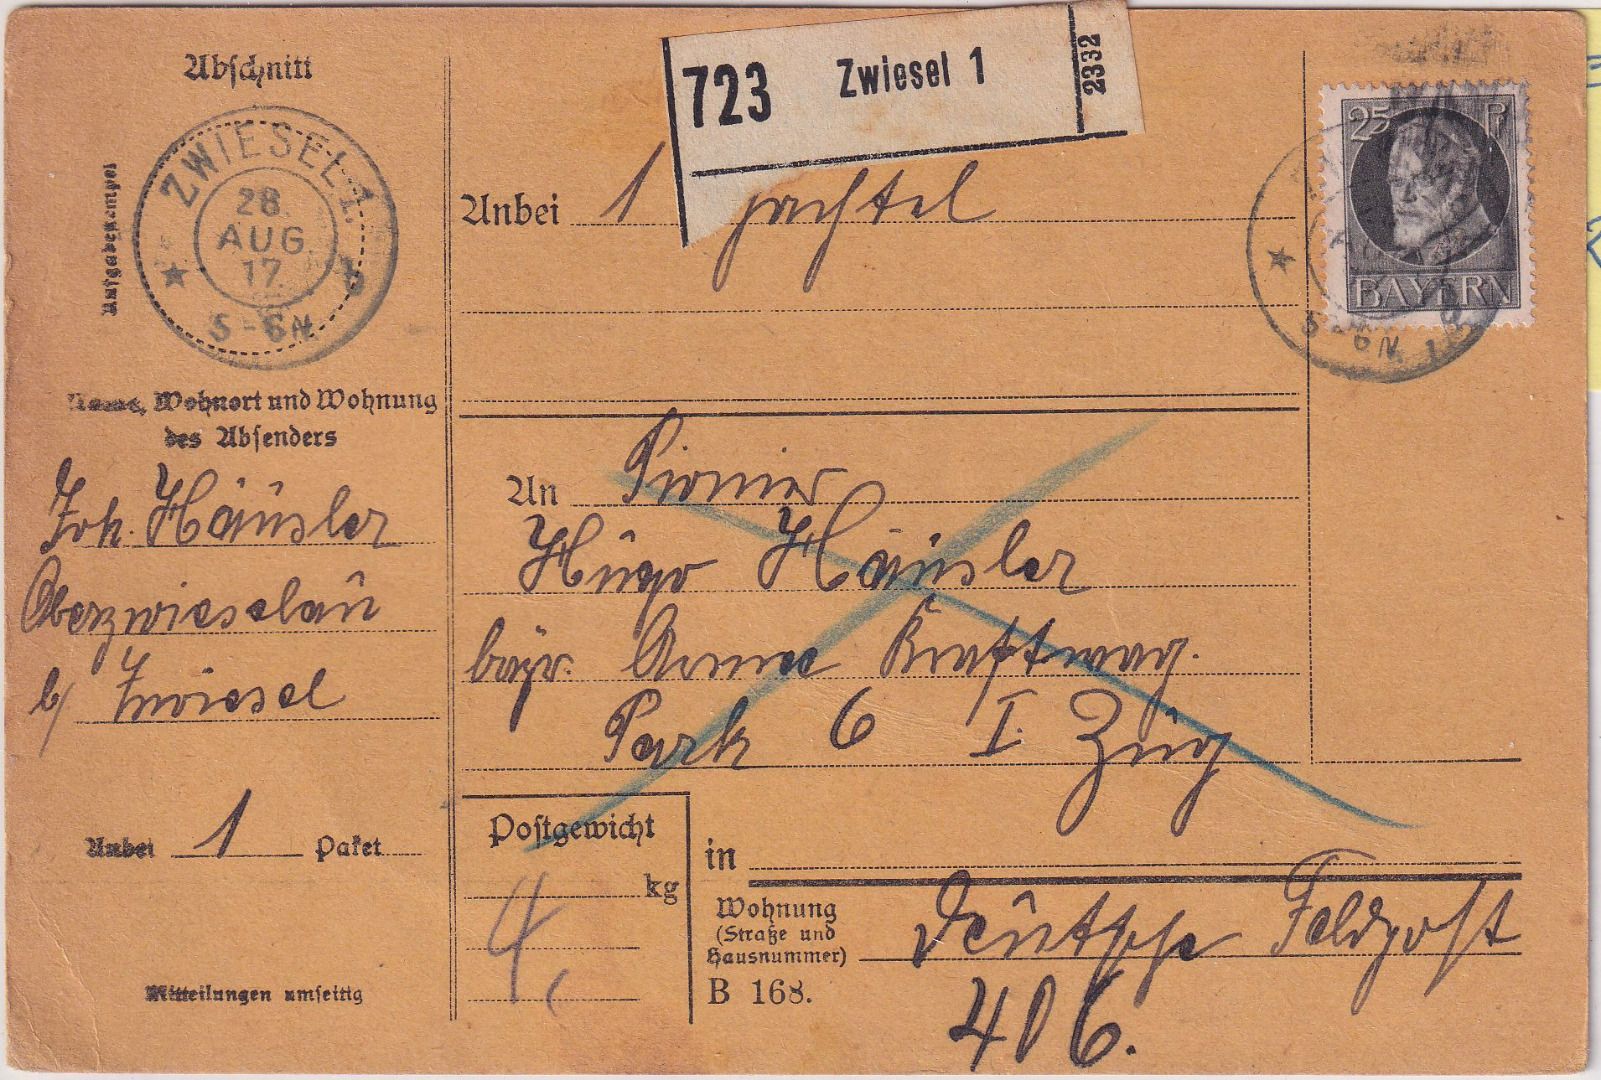 Abschnitt
Aufgabestempel
ZWIESEL 1.
28.
AUG
17.
★ b
5-6 N.
Name, Wohnort und Wohnung
des Absenders
Joh. Häusler
Oberzwieselau
b/ Zwiesel
Anbei 1 Paket
Mitteilungen umseitig
723 Zwiesel 1 2332
Anbei 1
An Pionier
Hugo Häusler
bayr. Armee Kraftwag.
Park 6 I. Zug
Postgewicht
kg
4,
in
Wohnung
(Straße und
Hausnummer)
Deutsche Feldpost
406.
B 168.
25 Pf
BAYERN
★ 5-6 N.